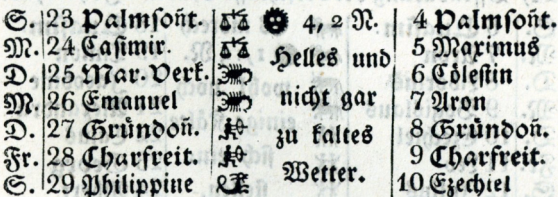 S. 23 Palmsoñt. ♎ 4, 2 N. 4 Palmsoñt.
M. 24 Casimir. ♎ Helles und 5 Maximus
D. 25 Mar. Verk. ♏ nicht gar 6 Cölestin
M. 26 Emanuel ♏ zu kaltes 7 Aron
D. 27 Gründoñ. ♐ Wetter. 8 Gründoñ.
Fr. 28 Charfreit. ♐ 9 Charfreit.
S. 29 Philippine ♑ 10 Ezechiel